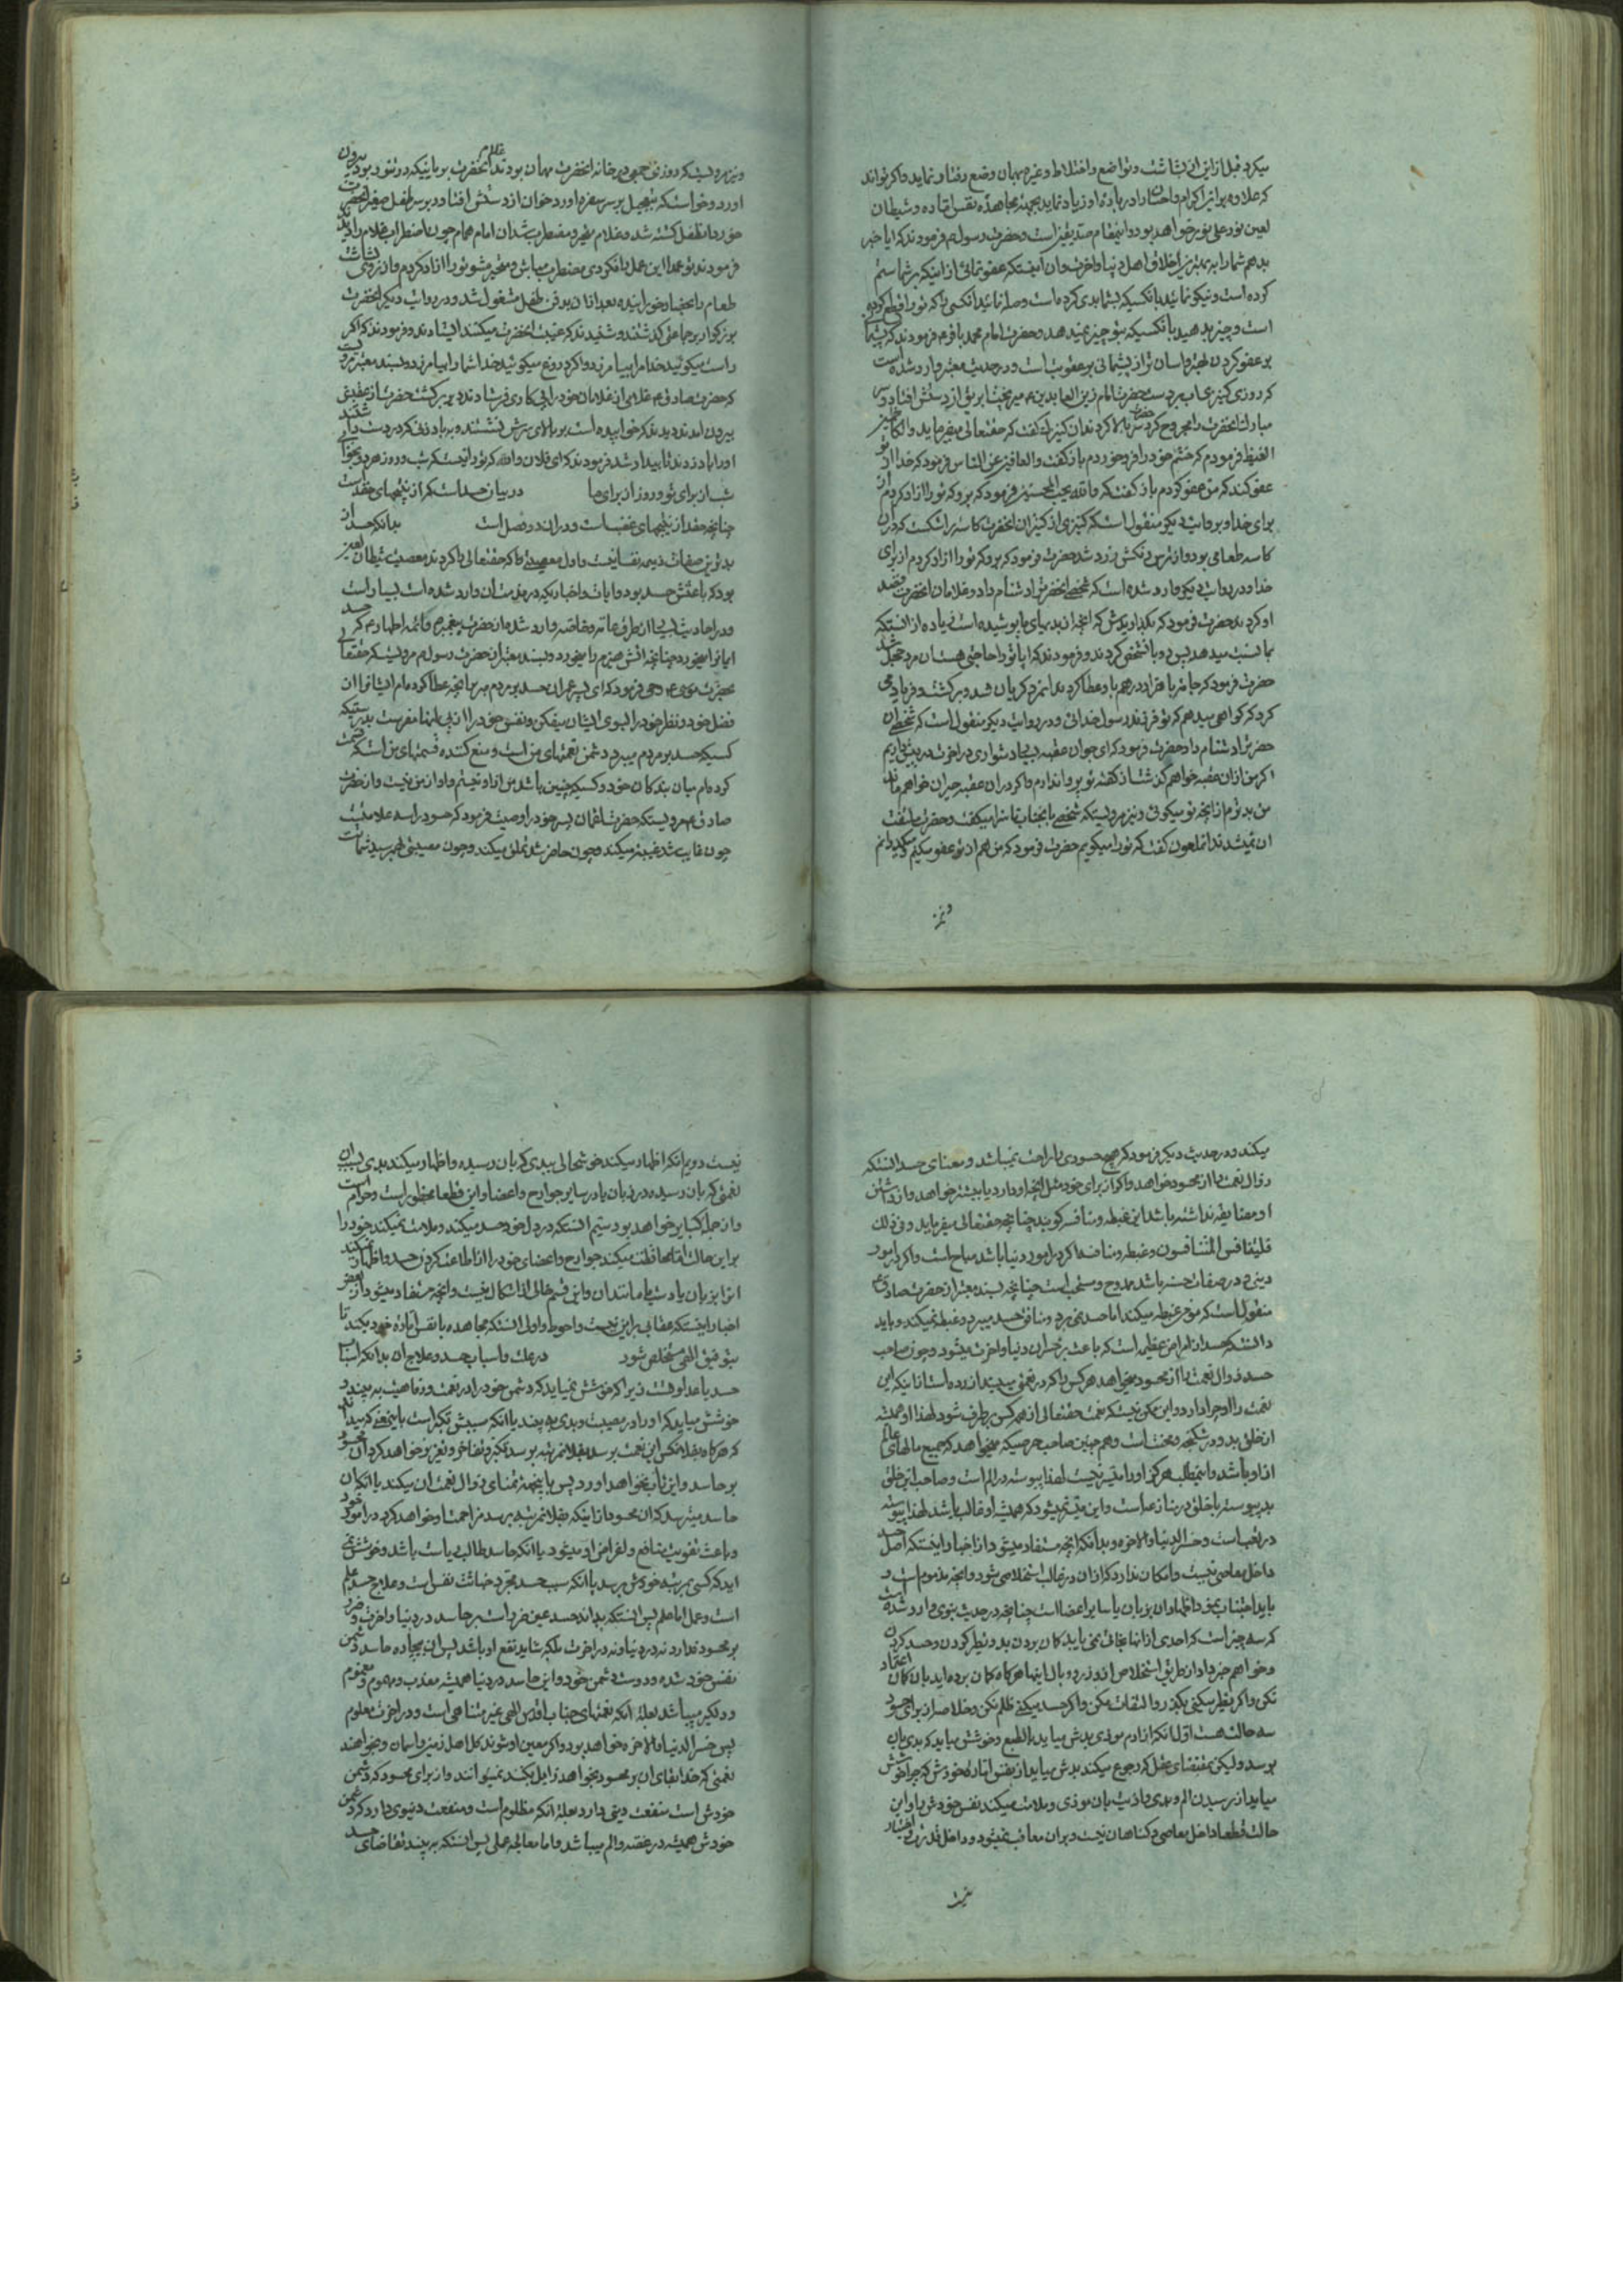 میکرد قبل از این از بشاشت و تواضع و اختلاط و غیره بهمان وضع رفتار نماید و اگر تواند
که علاوه بر این اکرام و احسان را در باره او زیاد نماید بجهة مجاهده نفس اماره و شیطان
لعین نور علی نور خواهد بود و اینمقام صدیقین است و حضرت رسول ص فرمودند که ایا خبر
بدهم شما را به بهترین اخلاق اهل دنیا و اخرت و ان اینستکه عفو نمائی از اینکه بر شما ستم
کرده است و نیکو نمائید با کسیکه بشما بدی کرده است و صله نمائید انکسی را که تو را قطع کرده
است و چیز بدهید بانکسیکه بتو چیز نمیدهد و حضرت امام محمد باقر ع فرمودند که پشیمانی
بر عفو کردن بهتر و اسان تر از پشیمانی بر عقوبتست و در حدیث معتبر وارد شده است
که روزی کنیزی اب بر دست حضرت امام زین العابدین ع میریخت ابریق از دستش افتاد و سر
مبارک انحضرت را مجروح کرد حضرت سر بالا کردند ان کنیزک گفت که حقتعالی میفرماید و الکاظمین
الغیظ فرمودم که خشم خود را فرو خوردم باز گفت و العافین عن الناس فرمود که خدا از تو
عفو کند که من عفو کردم باز گفت که و الله یحب المحسنین فرمود که برو که تو را ازاد کردم از
برای خدا و بروایت دیگر منقول است که کنیزی از کنیزان انحضرت کاسه را شکست که در ان
کاسه طعامی بود و از ترس رنگش زرد شد حضرت فرمود که برو که تو را ازاد کردم از برای
خدا و در روایت دیگر وارد شده است که شخصی انحضرت را دشنام داد و غلامان انحضرت قصد
او کردند حضرت فرمود که بگذاریدش که انچه از بدیهای ما پوشیده است زیاده از انستکه
بما نسبت میدهد پس رو بانشخص کردند و فرمودند که ایا تو را حاجتی هست ان مرد خجل شد
حضرت فرمود که جامه با هزار درهم باو عطا کردند انمرد گریان شد و برگشت و فریاد می
کرد که گواهی میدهم که تو فرزند رسول خدائی و در روایت دیگر منقول است که شخصی ان
حضرت را دشنام داد حضرت فرمود که ای جوان عقبه بسیار دشواری در اخرت در پیش داریم
اگر من از ان عقبه خواهم گذشت از گفته تو پروا ندارم و اگر در ان عقبه حیران خواهم ماند
من بدترم از انچه تو میگوئی و نیز مرویستکه شخصی بانجناب ناسزا میگفت و حضرت ملتفت
ان نمیشدند انملعون گفت که تو را میگویم حضرت فرمود که من هم از تو عفو میکنم
و نیز
و نیز مرویست که روزی جمعی در خانه انحضرت مهمان بودند غلام انحضرت بریانیکه در تنور بود بیرون
اورد و خواست که بتعجیل بر سر سفره اورد خوان از دستش افتاد و بر سر طفل صغیر انحضرت
خورد انطفل کشته شد و غلام متغیر و مضطرب شد ان امام همام چون اضطراب غلام را دید
فرمودند تو عمدا این عمل را نکردی مضطرب مباش و متغیر مشو تو را ازاد کردم و از روی بشاشت
طعام را بحضار خورانیده بعد از ان بدفن طفل مشغول شد و در روایت دیگر انحضرت
بزرگوار بر جماعتی گذشتند و شنیدند که غیبت انحضرت میکنند ایستادند و فرمودند که اگر
راست میگوئید خدا مرا بیامرزد و اگر دروغ میگوئید خدا شما را بیامرزد و بسند معتبر مرویست
که حضرت صادق ع غلامی از غلامان خود را پی کاری فرستادند دیر برگشت حضرت از عقبش
بیرون امدند دیدند که خوابیده است بر بالای سرش نشستند و بر باد زنی که در دست داشتند
او را باد زدند تا بیدار شد فرمودند که ای فلان والله که تو را نیست که شب و روز هر دو بخوابی
شب از برای تو و روز از برای ما در بیان حسد است که از نتیجهای حقد است
چنانچه حقد از نتیجهای غضبست و در ان دو فصل است بدانکه حسد از
بدترین صفات ذمیمه نفسانیست و اول معصیتی که حقتعالی را کردند معصیت شیطان لعین
بود که باعثش حسد بود و ایات و اخباریکه در مذمت ان وارد شده است بسیار است
و در احادیث بسیار از طرق عامه و خاصه وارد شده از حضرت پیغمبر ص و ائمه اطهار ع که حسد
ایمانرا میخورد چنانچه اتش هیزم را میخورد و بسند معتبر از حضرت رسول ص مرویست که حقتعالی
بحضرت موسی ع وحی فرمود که ای پسر عمران حسد بر مردم مبر بر انچه عطا کرده ام ایشانرا از
فضل خود و نظر خود را بسوی ایشان میفکن و نفس خود را از پی انها مفرست بدرستیکه
کسیکه حسد بر مردم میبرد دشمن نعمتهای من است و منع کننده قسمتهای من است که قسمت
کرده ام میان بندگان خود و کسیکه چنین باشد من از او نیستم و او از من نیست و از حضرت
صادق ع مرویستکه حضرت لقمان پسر خود را وصیت فرمود که حسود را سه علامتست
چون غایب شد غیبت میکند و چون حاضر شد تملق میکند و چون مصیبتی بهم رسید شماتت
میکند و در حدیث دیگر فرمود که هیچ حسودی را راحت نمیباشد و معنای حسد انستکه
زوال نعمت را از محسود خواهد و اگر از برای خود مثل انچه او دارد یا بیشتر خواهد و از داشتن
او مضایقه نداشته باشد این غبطه و منافسه گویند چنانچه حقتعالی میفرماید و فی ذلک
فلیتنافس المتنافسون و غبطه و منافسه اگر در امور دنیا باشد مباح است و اگر در امور
دینی و در صفات حسنه باشد ممدوح و مستحب است چنانچه بسند معتبر از حضرت صادق ع
منقول است که مؤمن غبطه میکند اما حسد نمی برد و منافق حسد میبرد و غبطه نمیکند و باید
دانست که حسد از امراض عظیمه است که باعث بر خسران دنیا و اخرت میشود و چون صاحب
حسد زوال نعمت را از محسود میخواهد هر کس را که در نعمتی میبیند ازرده است تا زمانیکه این
نعمت را او دارد و این ممکن نیست که نعمت حقتعالی از همه کس برطرف شود لهذا او همیشه
از خلق بد و در شکنجه و محنت است و همچنین صاحب حرص که میخواهد که جمیع مالهای عالم
از او باشد و اینمطلب هرگز او را میسر نیست لهذا پیوسته در الم است و صاحب این خلق
بد پیوسته با خلق در منازعه است و این میسر نمیشود که همیشه او غالب باشد لهذا پیوسته
در تعب است و خسر الدنیا و الاخره و بدانکه انچه مستفاد میشود از اخبار اینستکه اصل حسد
داخل معاصی نیست و امکان ندارد که از ان در غالب استخلاص شود و انچه مذموم است و
باید اجتناب نمود اظهار ان بزبان یا سایر اعضا است چنانچه در حدیث نبوی وارد شده است
که سه چیز است که احدی از انها نجات نمی یابد گمان بردن بد و تطیر کردن و حسد کردن
و خواهم خبر داد از طریق استخلاص از وزر و وبال اینها هرگاه گمان برده اید بان گمان اعتماد
نکن و اگر تطیر میکنی بگذر و التفات مکن و اگر حسد میکنی ظلم نکن و خلاصه از برای حسود
سه حالت هست اول انکه از ادم موذی بدش میاید بالطبع و خوشش میاید که بدی بان
برسد ولیکن بمقتضای عقل که رجوع میکند بدش میاید از نفس اماره خودش که چرا خوشش
میاید از رسیدن الم و بدی و اذیت بان موذی و ملامت میکند نفس خودش را و این
حالت قطعا داخل معاصی و گناهان نیست و بران معاقب نمیشود و داخل قدرت و اختیار
نیست
نیست دویم انکه اظهار میکند خوشحالی ببدی که بان رسیده و اظهار میکند بدی بسبب ان
نعمتی که بان رسیده در زبان یا در سایر جوارح و اعضا و این قطعا محظور است و حرام است
و از جمله کبایر خواهد بود سیّم انستکه در دل خود حسد میکند و ملامت نمیکند خود را
بر این حالت اما محافظت میکند جوارح و اعضای خود را از اطاعت کردن حسد و اظهار نمیکند
انرا بزبان یا دست یا مانند ان و این قسم خالی از اشکال نیست و انچه مستفاد میشود از بعض
اخبار اینستکه عقابی بر این نیست و احوط و اولی انستکه مجاهده با نفس اماره خود بکند تا
بتوفیق الهی مستخلص شود در علت و اسباب حسد و علاج ان بدانکه اسباب
حسد یا عداوتست زیرا که خوشش نمیاید که دشمن خود را در نعمت و رفاهیت به بیند و
خوشش میاید که او را در مصیبت و بدی به بیند یا انکه سببش تکبر است باینمعنی که میداند
که هرگاه بفلانکس این نعمت برسد بفلانمرتبه برسد تکبر و تفاخر و تعزز خواهد کرد ان محسود
بر حاسد و این تاب نخواهد اورد پس باینجهت تمنای زوال نعمت ان میکند یا انکه ان
حاسد میترسد که ان محسود از اینکه بفلانمرتبه برسد مزاحمت او خواهد کرد در امور خود
و باعث تفویت منافع و اغراض او میشود یا انکه حاسد طالب ریاست باشد و خوشش نمی
اید که کسی بمرتبه خودش برسد یا انکه سبب حسد مجرد خباثت نفس است و علاج حسد علم
است و عمل اما علم پس انستکه بداند حسد عین ضرر است بر حاسد در دنیا و اخرت و ضرر
بر محسود ندارد نه در دنیا و نه در اخرت بلکه شاید نفع او باشد پس ان بیچاره حاسد دشمن
نفس خود شده و دوست دشمن خود و این حاسد در دنیا همیشه معذب و مهموم و مغموم
و دلگیر میباشد بعلة انکه نعمتهای جناب اقدس الهی غیر متناهی است و در اخرت معلوم
پس خسر الدنیا و الاخره خواهد بود و اگر معین او شوند کل اهل زمین و اسمان و بخواهند
نعمتی که خدا بقای ان بر محسود بخواهد زایل بکند نمیتوانند و از برای محسود که دشمن
خودش است منفعت دینی دارد بعلة انکه مظلوم است و منفعت دنیوی دارد که دشمن
خودش همیشه در غصه و الم میباشد و اما معالجه عملی پس انستکه به بیند تقاضای حسد